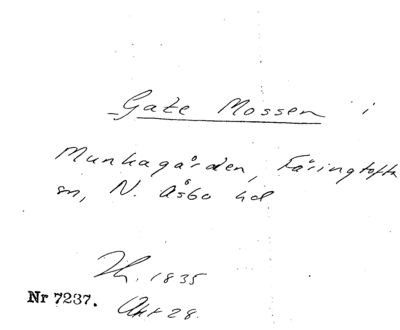 Gate Mossen i
Munkagården, Färingtofta
sn, N. Åsbo hd
Th. 1835
Nr 7237.
Akt 28.